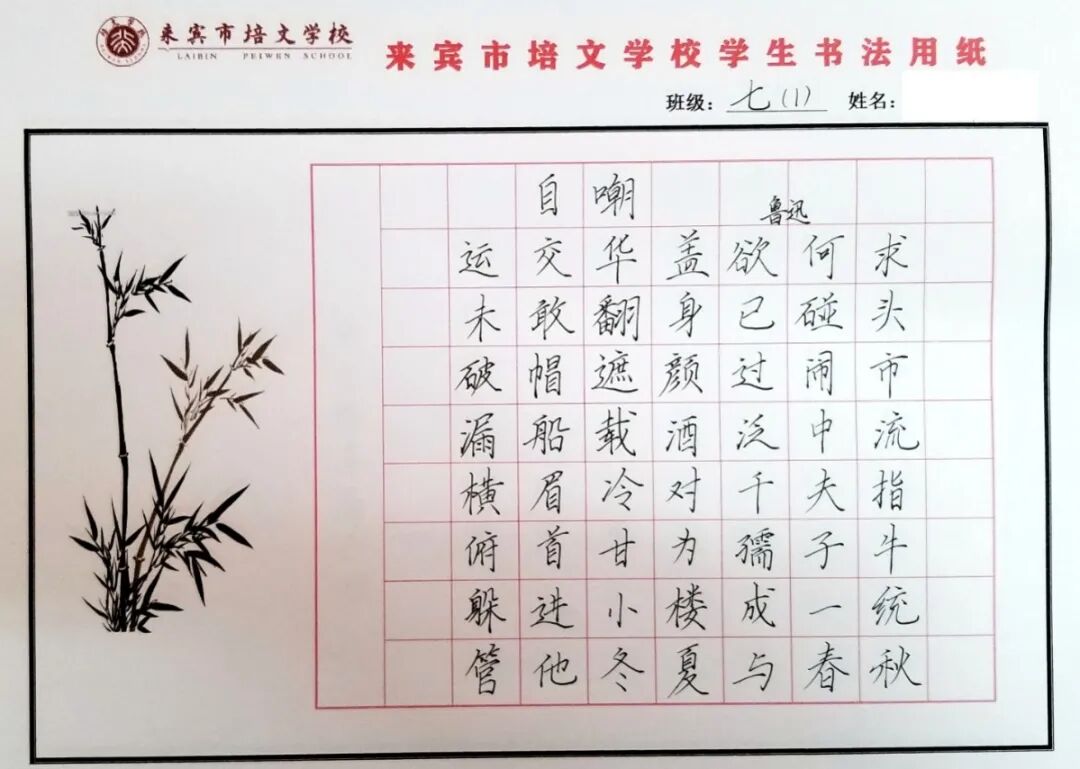 来宾市培文学校
LAIBIN PEIWEN SCHOOL
来宾市培文学校学生书法用纸
班级：七(1) 姓名：
自嘲
鲁迅
运交华盖欲何求
未敢翻身已碰头
破帽遮颜过闹市
漏船载酒泛中流
横眉冷对千夫指
俯首甘为孺子牛
躲进小楼成一统
管他冬夏与春秋